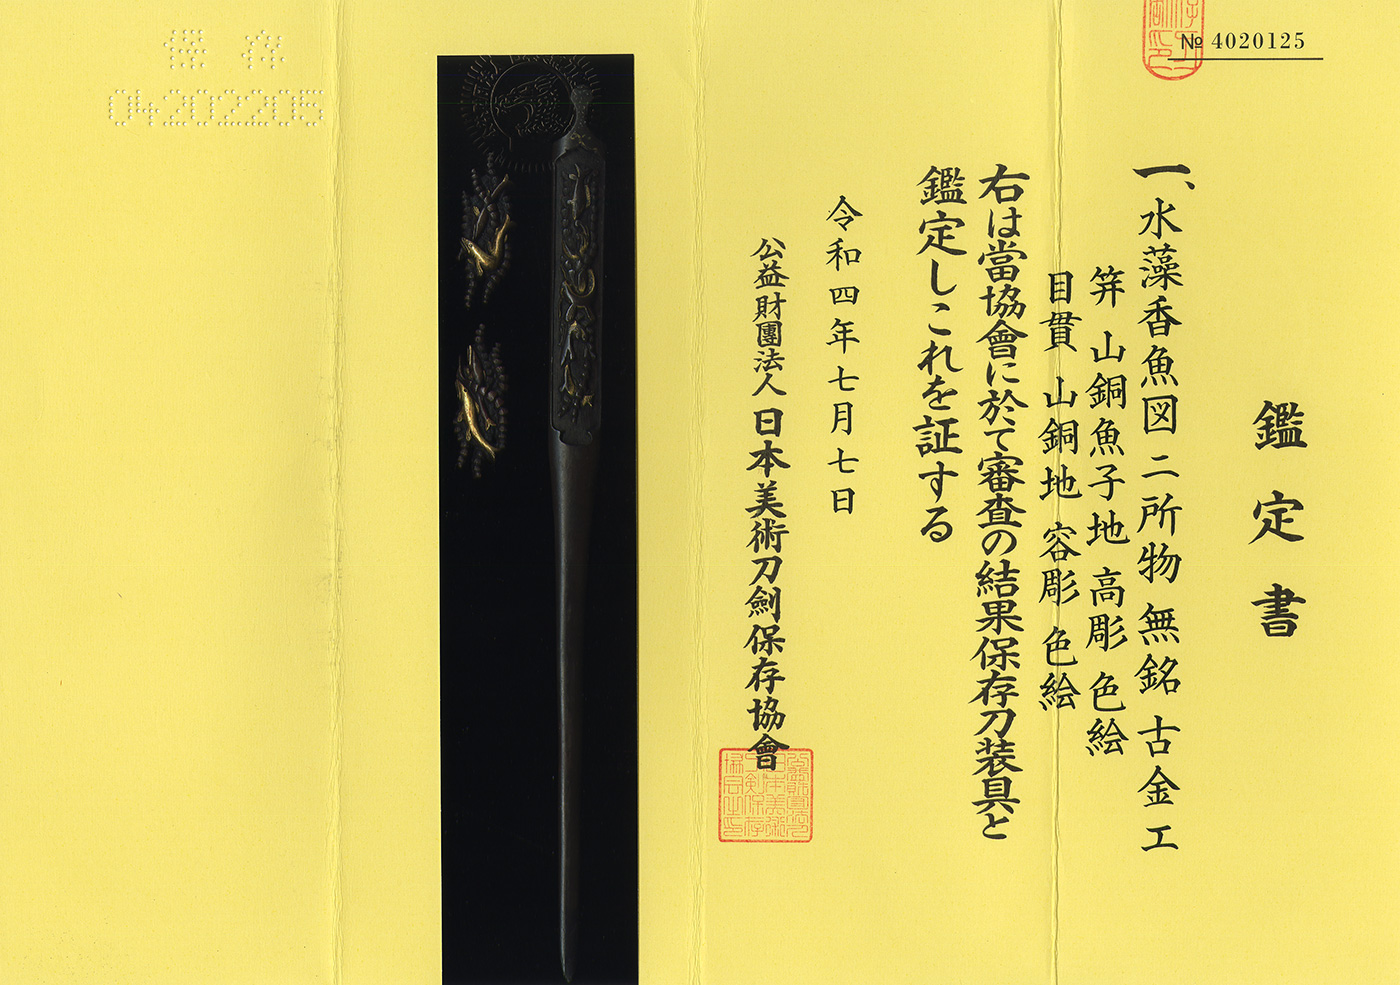 № 4020125
鑑定書
一、水藻香魚図二所物 無銘 古金工
笄 山銅魚子地 高彫 色絵
目貫 山銅地 容彫 色絵
右は當協會に於て審査の結果保存刀装具と
鑑定しこれを証する
令和四年七月七日
公益財團法人 日本美術刀劍保存協會
保存
04202205